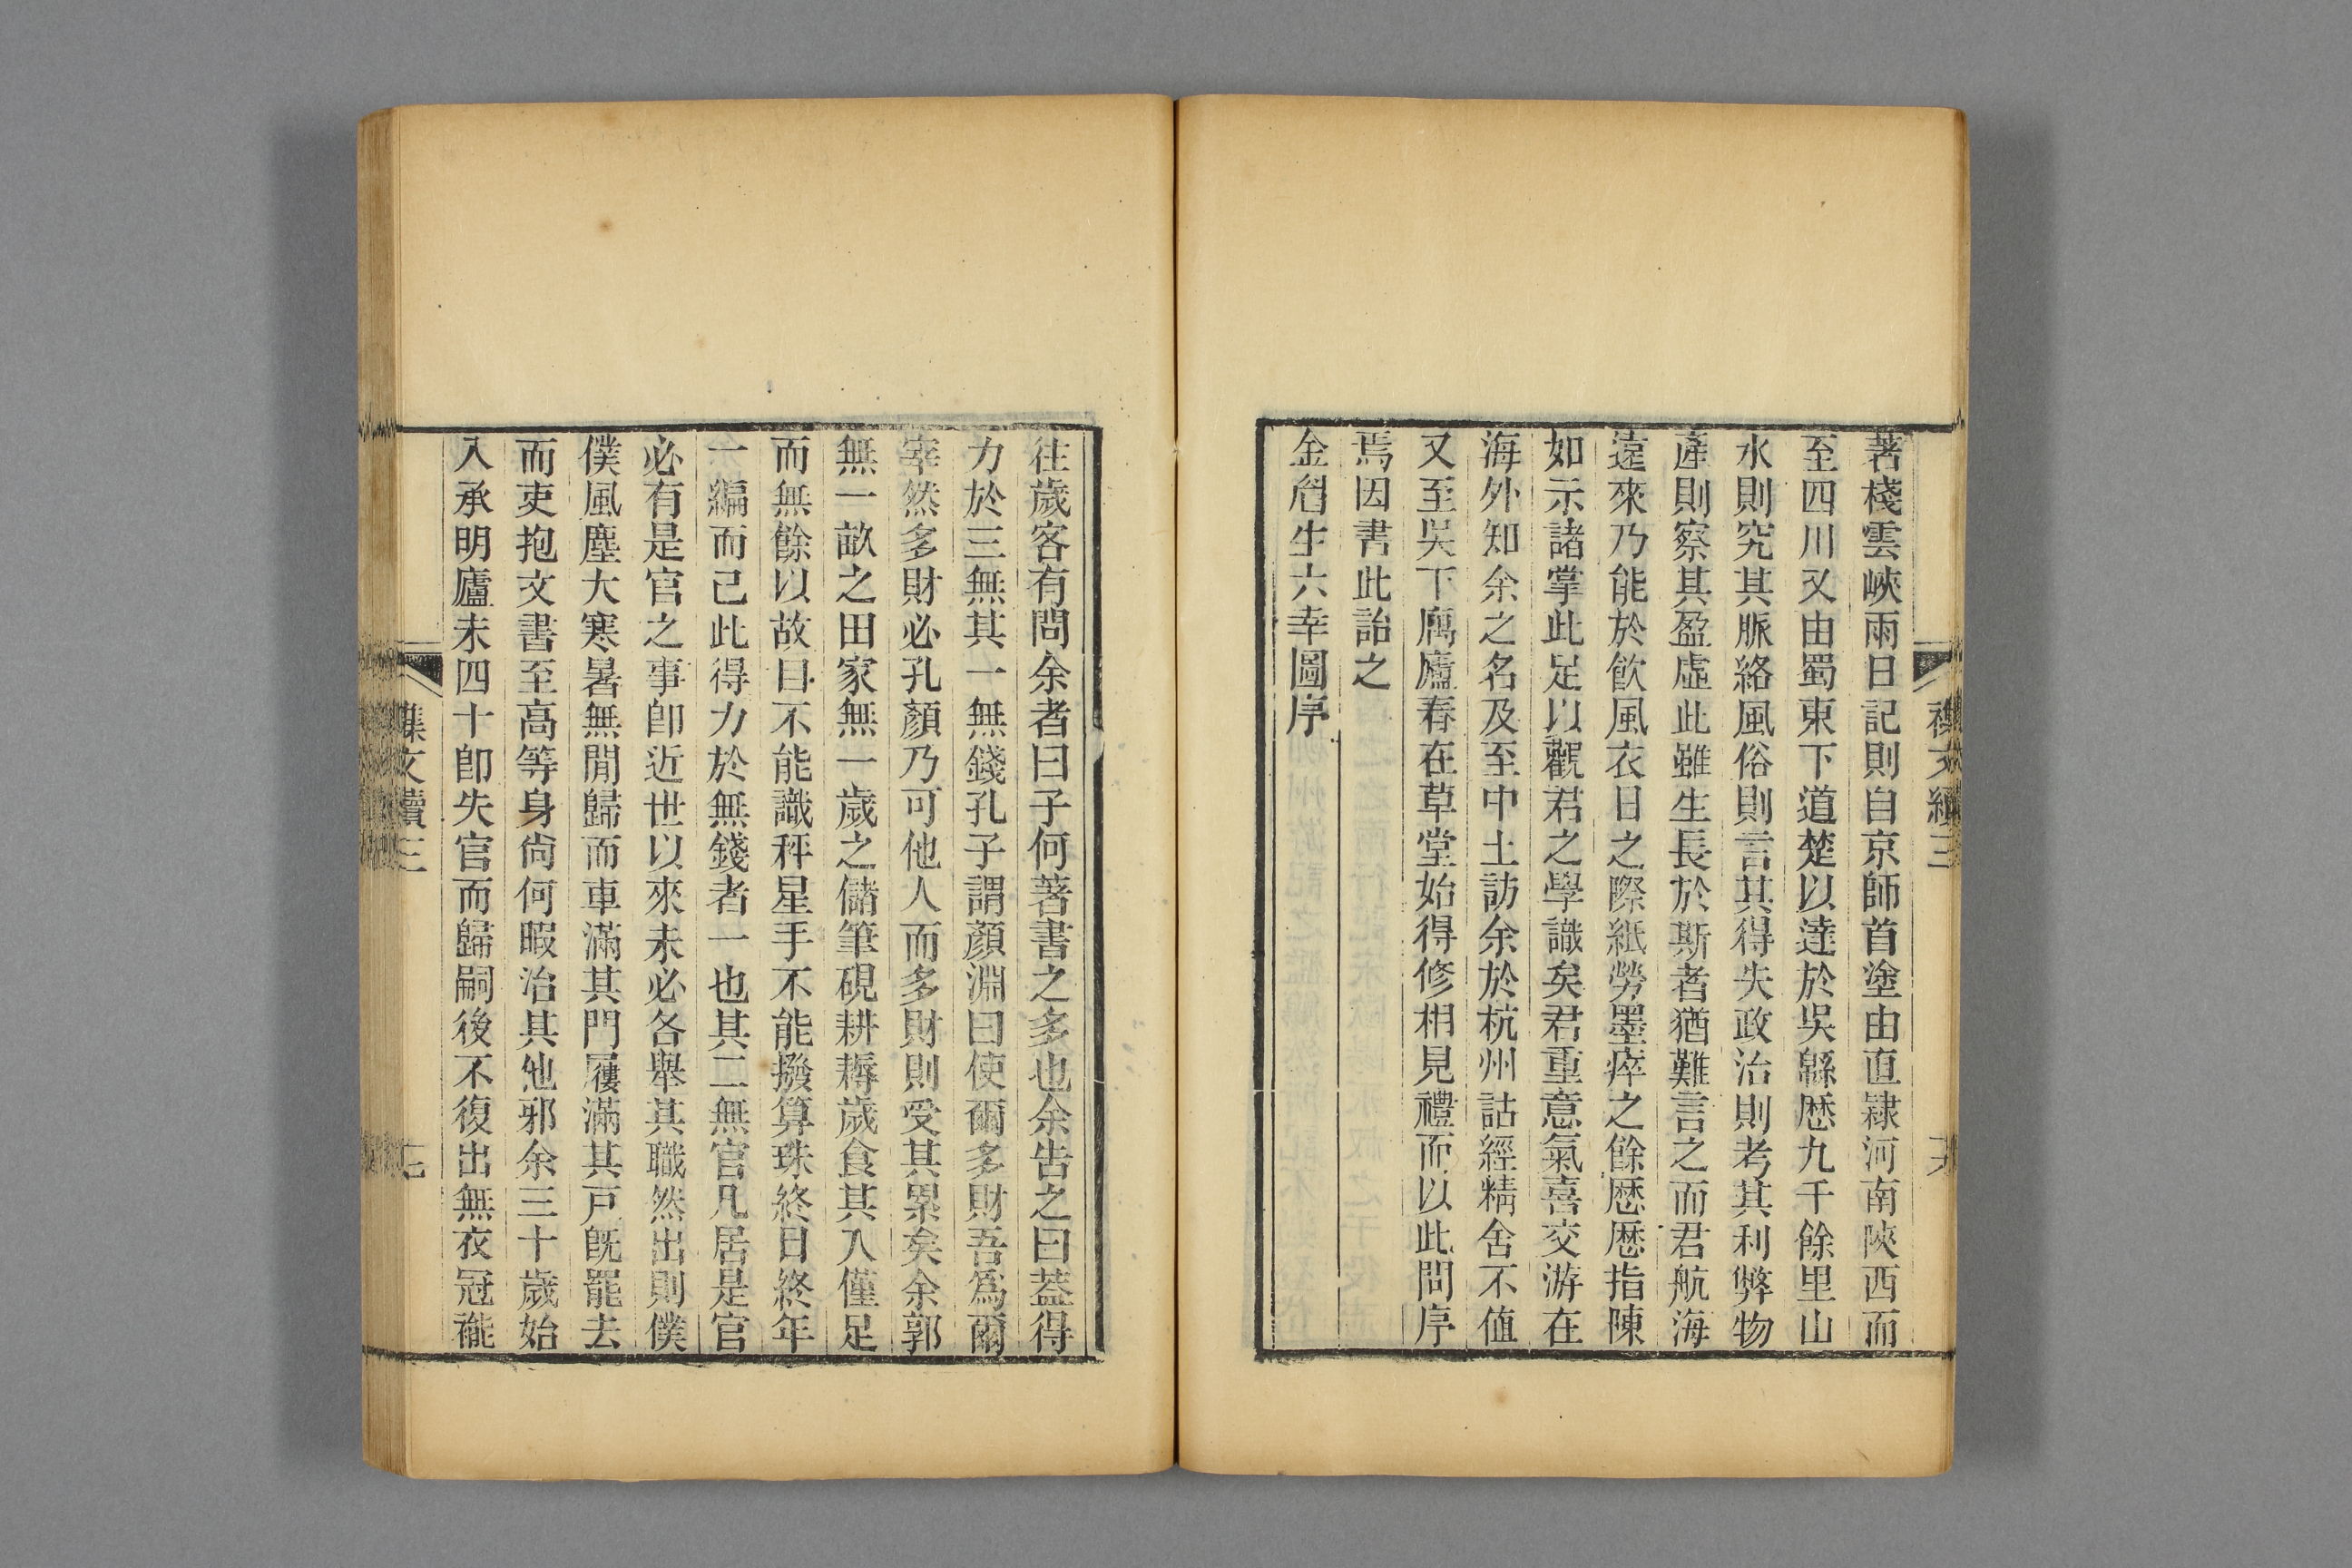 著棧雲峽雨日記則自京師首塗由直隸河南陝西而
至四川又由蜀東下道楚以達於吳緜歷九千餘里山
水則究其脈絡風俗則言其得失政治則考其利弊物
產則察其盈虛此雖生長於斯者猶難言之而君航海
遠來乃能於飲風衣日之際紙勞墨瘁之餘歷歷指陳
如示諸掌此足以觀君之學識矣君重意氣喜交游在
海外知余之名及至中土訪余於杭州詁經精舍不值
又至吳下厲廬春在草堂始得修相見禮而以此問序
焉因書此詒之
金眉生六幸圖序
往歲客有問余者曰子何著書之多也余告之曰葢得
力於三無其一無錢孔子謂顏淵曰使爾多財吾爲爾
宰然多財必孔顏乃可他人而多財則受其累矣余郭
無一畝之田家無一歲之儲筆硯耕耨歲食其入僅足
而無餘以故目不能識秤星手不能撥算珠終日終年
一編而已此得力於無錢者一也其二無官凡居是官
必有是官之事卽近世以來未必各舉其職然出則僕
僕風塵大寒暑無閒歸而車滿其門屨滿其戸旣罷去
而吏抱文書至高等身尙何暇治其他邪余三十歲始
入承明廬未四十卽失官而歸嗣後不復出無衣冠褦